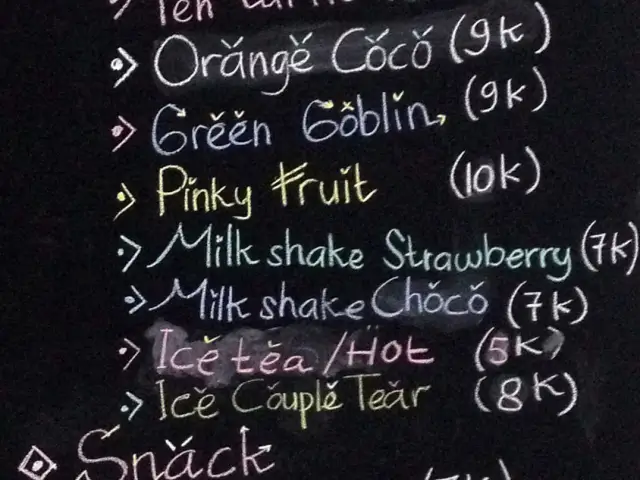 Orăngĕ Cŏcŏ (9k)
Grĕĕn Gŏblin (9k)
Pinky Fruit (10k)
Milk shake Strawberry (7k)
Milk shake Chŏcŏ (7k)
Icĕ tĕa /Hot (5k)
Icĕ Cŏuplĕ Teăr (8k)
Snăck